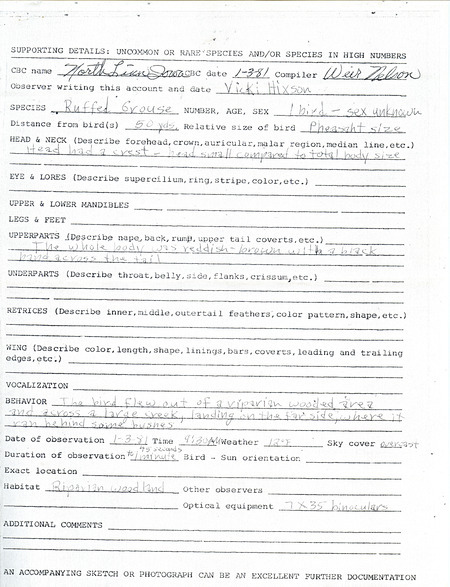 SUPPORTING DETAILS: UNCOMMON OR RARE SPECIES AND/OR SPECIES IN HIGH NUMBERS
CBC name North Linn Iowa CBC date 1-3-81 Compiler Weir Nelson
Observer writing this account and date Vicki Hixson
SPECIES Ruffed Grouse NUMBER, AGE, SEX 1 bird - sex unknown
Distance from bird(s) 50 yds. Relative size of bird Pheasant size
HEAD & NECK (Describe forehead, crown, auricular, malar region, median line, etc.)
Head had a crest - head small compared to total body size
EYE & LORES (Describe supercilium, ring, stripe, color, etc.)
UPPER & LOWER MANDIBLES
LEGS & FEET
UPPERPARTS (Describe nape, back, rump, upper tail coverts, etc.)
The whole body was reddish-brown with a black
band across the tail
UNDERPARTS (Describe throat, belly, side, flanks, crissum, etc.)
RETRICES (Describe inner, middle, outertail feathers, color pattern, shape, etc.)
WING (Describe color, length, shape, linings, bars, coverts, leading and trailing
edges, etc.)
VOCALIZATION
BEHAVIOR The bird flew out of a riparian wooded area
and across a large creek, landing on the far side, where it
ran behind some bushes
Date of observation 1-3-81 Time 9:30 AM Weather 12°F Sky cover overcast
45 seconds
Duration of observation to 1 minute Bird - Sun orientation
Exact location
Habitat Riparian woodland Other observers
Optical equipment 7 X 35 binoculars
ADDITIONAL COMMENTS
AN ACCOMPANYING SKETCH OR PHOTOGRAPH CAN BE AN EXCELLENT FURTHER DOCUMENTATION